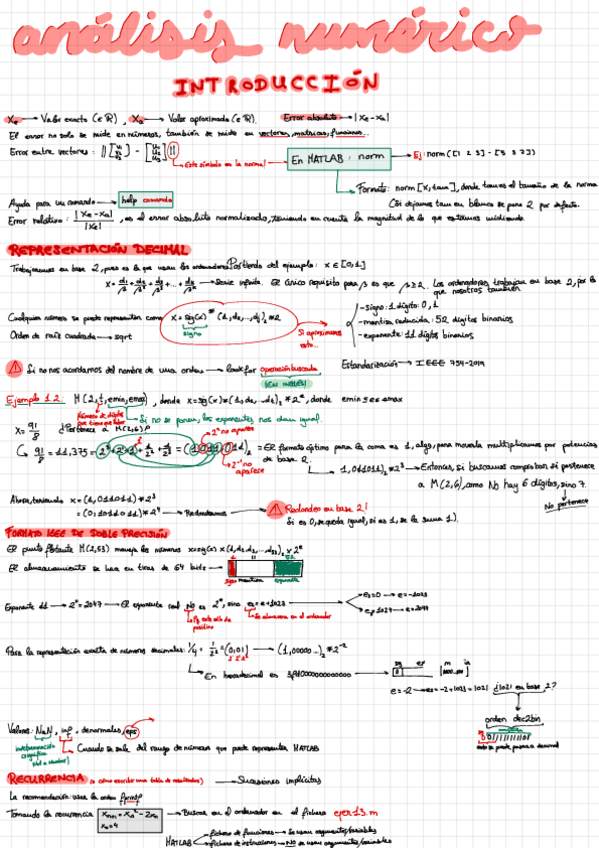 análisis numérico
INTRODUCCIÓN
Xe → Valor exacto (∈ ℝ), Xa → Valor aproximado (∈ ℝ). Error absoluto → |Xe - Xa|
El error no solo se mide en números, también se mide en vectores, matrices, funciones...
Error entre vectores:
Este símbolo es la norma!
En MATLAB: norm
Ej: norm([1 2 3] - [3 3 7])
Formato: norm [X, tam], donde tam es el tamaño de la norma
Si dejamos tam en blanco se pone 2 por defecto.
Ayuda para un comando → help comando
Error relativo: |Xe - Xa| / |Xe|, es el error absoluto normalizado, teniendo en cuenta la magnitud de lo que estamos midiendo.
REPRESENTACIÓN DECIMAL
Trabajaremos en base 2, pues es la que usan los ordenadores. Partiendo del ejemplo: x ∈ [0,1]
Serie infinita. El único requisito para β es que β≥2. Los ordenadores trabajan en base 2, por lo que nosotros también
Cualquier número se puede representar como
signo
Si aproximamos esto...
- signo: 1 dígito: 0, 1
- mantisa reducida: 52 dígitos binarios
- exponente: 11 dígitos binarios
Orden de raíz cuadrada → sqrt
Si no nos acordamos del nombre de una orden → lookfor operación buscada
(EN INGLÉS)
Estandarización → IEEE 754-2019
Ejemplo 1.2: M(2, t, emin, emax), donde x=sig(x)*(1,d₁...dt)₂*2ᵉ, donde emin ≤ e ≤ emax
Número de dígitos que tiene que haber
Si no se ponen, los exponentes nos dan igual.
x= 91/8 ¿Pertenece a M(2,6)?
2² no aparece
91/8 = 11,375 = 2³+2¹+1+1/2²+1/2³ = (1011,011)₂ = El formato óptimo para la coma es 1, algo, para moverla multiplicamos por potencias de base 2.
2⁻¹ no aparece
1,011011)₂ * 2³ → Entonces, si buscamos comprobar si pertenece a M(2,6), como no hay 6 dígitos, sino 7.
No pertenece
Ahora, teniendo x = (1,011011)*2³
= (0,1011011)*2⁴ → Redondeamos
Redondeo en base 2!
Si es 0, se queda igual, si es 1, se le suma 1).
FORMATO IEEE DE DOBLE PRECISIÓN
El punto flotante M(2,53) maneja los números x=sig(x) x (1,d₁d₂...d₅₂)₂ x 2ᵉ
El almacenamiento se hará en tiras de 64 bits
1 11 52
signo mantisa exponente
Exponente 11 → 2ⁿ = 2047 → El exponente real No es 2ⁿ, sino es=e+1023
Es este sólo es positivo
Se almacena en el ordenador
es=0 → e=-1023
Para la representación exacta de números decimales: 1/4 = 1/2² = (0,01) → (1,00000...)₂ * 2⁻²
En hexadecimal es
e = -2 → es = -2+1023 = 1021 ¿1021 en base 2?
orden dec2bin
Valores: NaN, inf, denormales, eps
Indeterminación
(Not a Number)
Cuando se sale del rango de números que puede representar MATLAB
RECURRENCIA (o cómo escribir una tabla de resultados) → Sucesiones implícitas
La recomendación: usar la orden fprintf
Tomando la recurrencia
Xn+1 = Xn² - 2Xn
X₀ = 4
Buscar en el ordenador en el fichero ejer13.m
MATLAB
fichero de funciones → Se usan argumentos/variables
fichero de instrucciones → NO se usan argumentos/variables